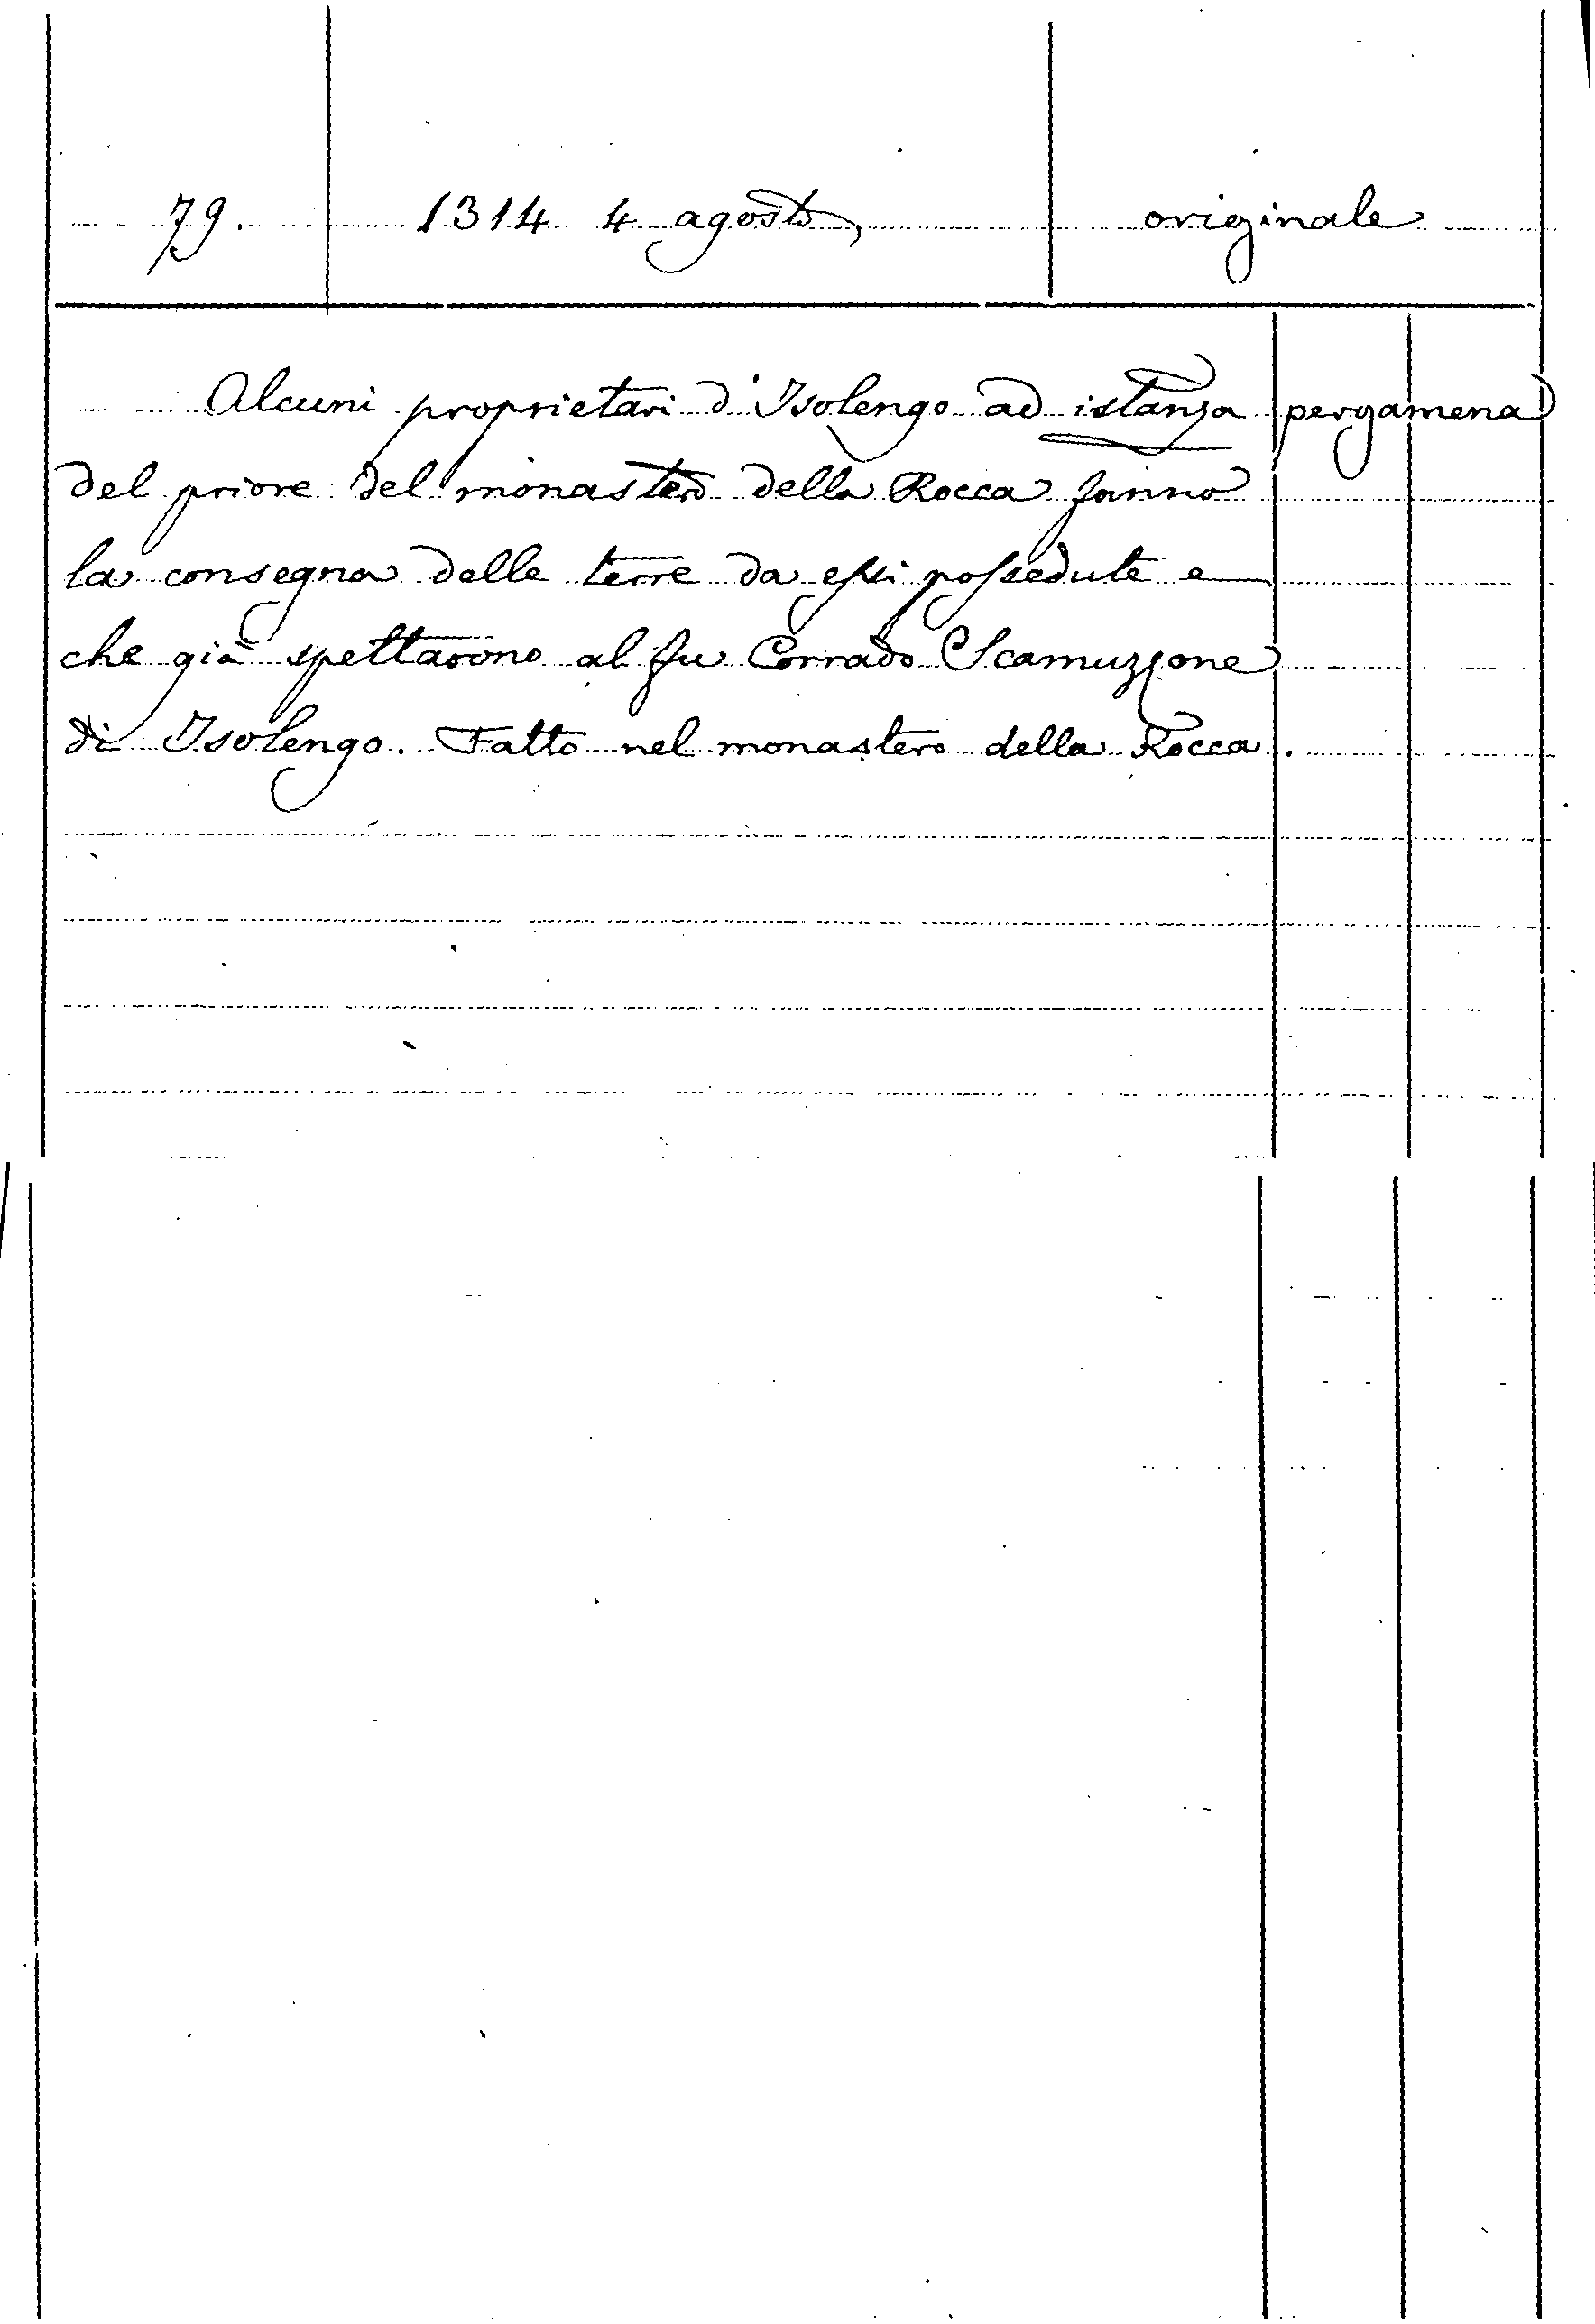 79. 1314 4 agosto originale
Alcuni proprietari d'Isolengo ad istanza pergamena
del priore del monastero della Rocca fanno
la consegna delle terre da essi possedute e
che già spettarono al fu Corrado Scamuzzone
di Isolengo. Fatto nel monastero della Rocca.